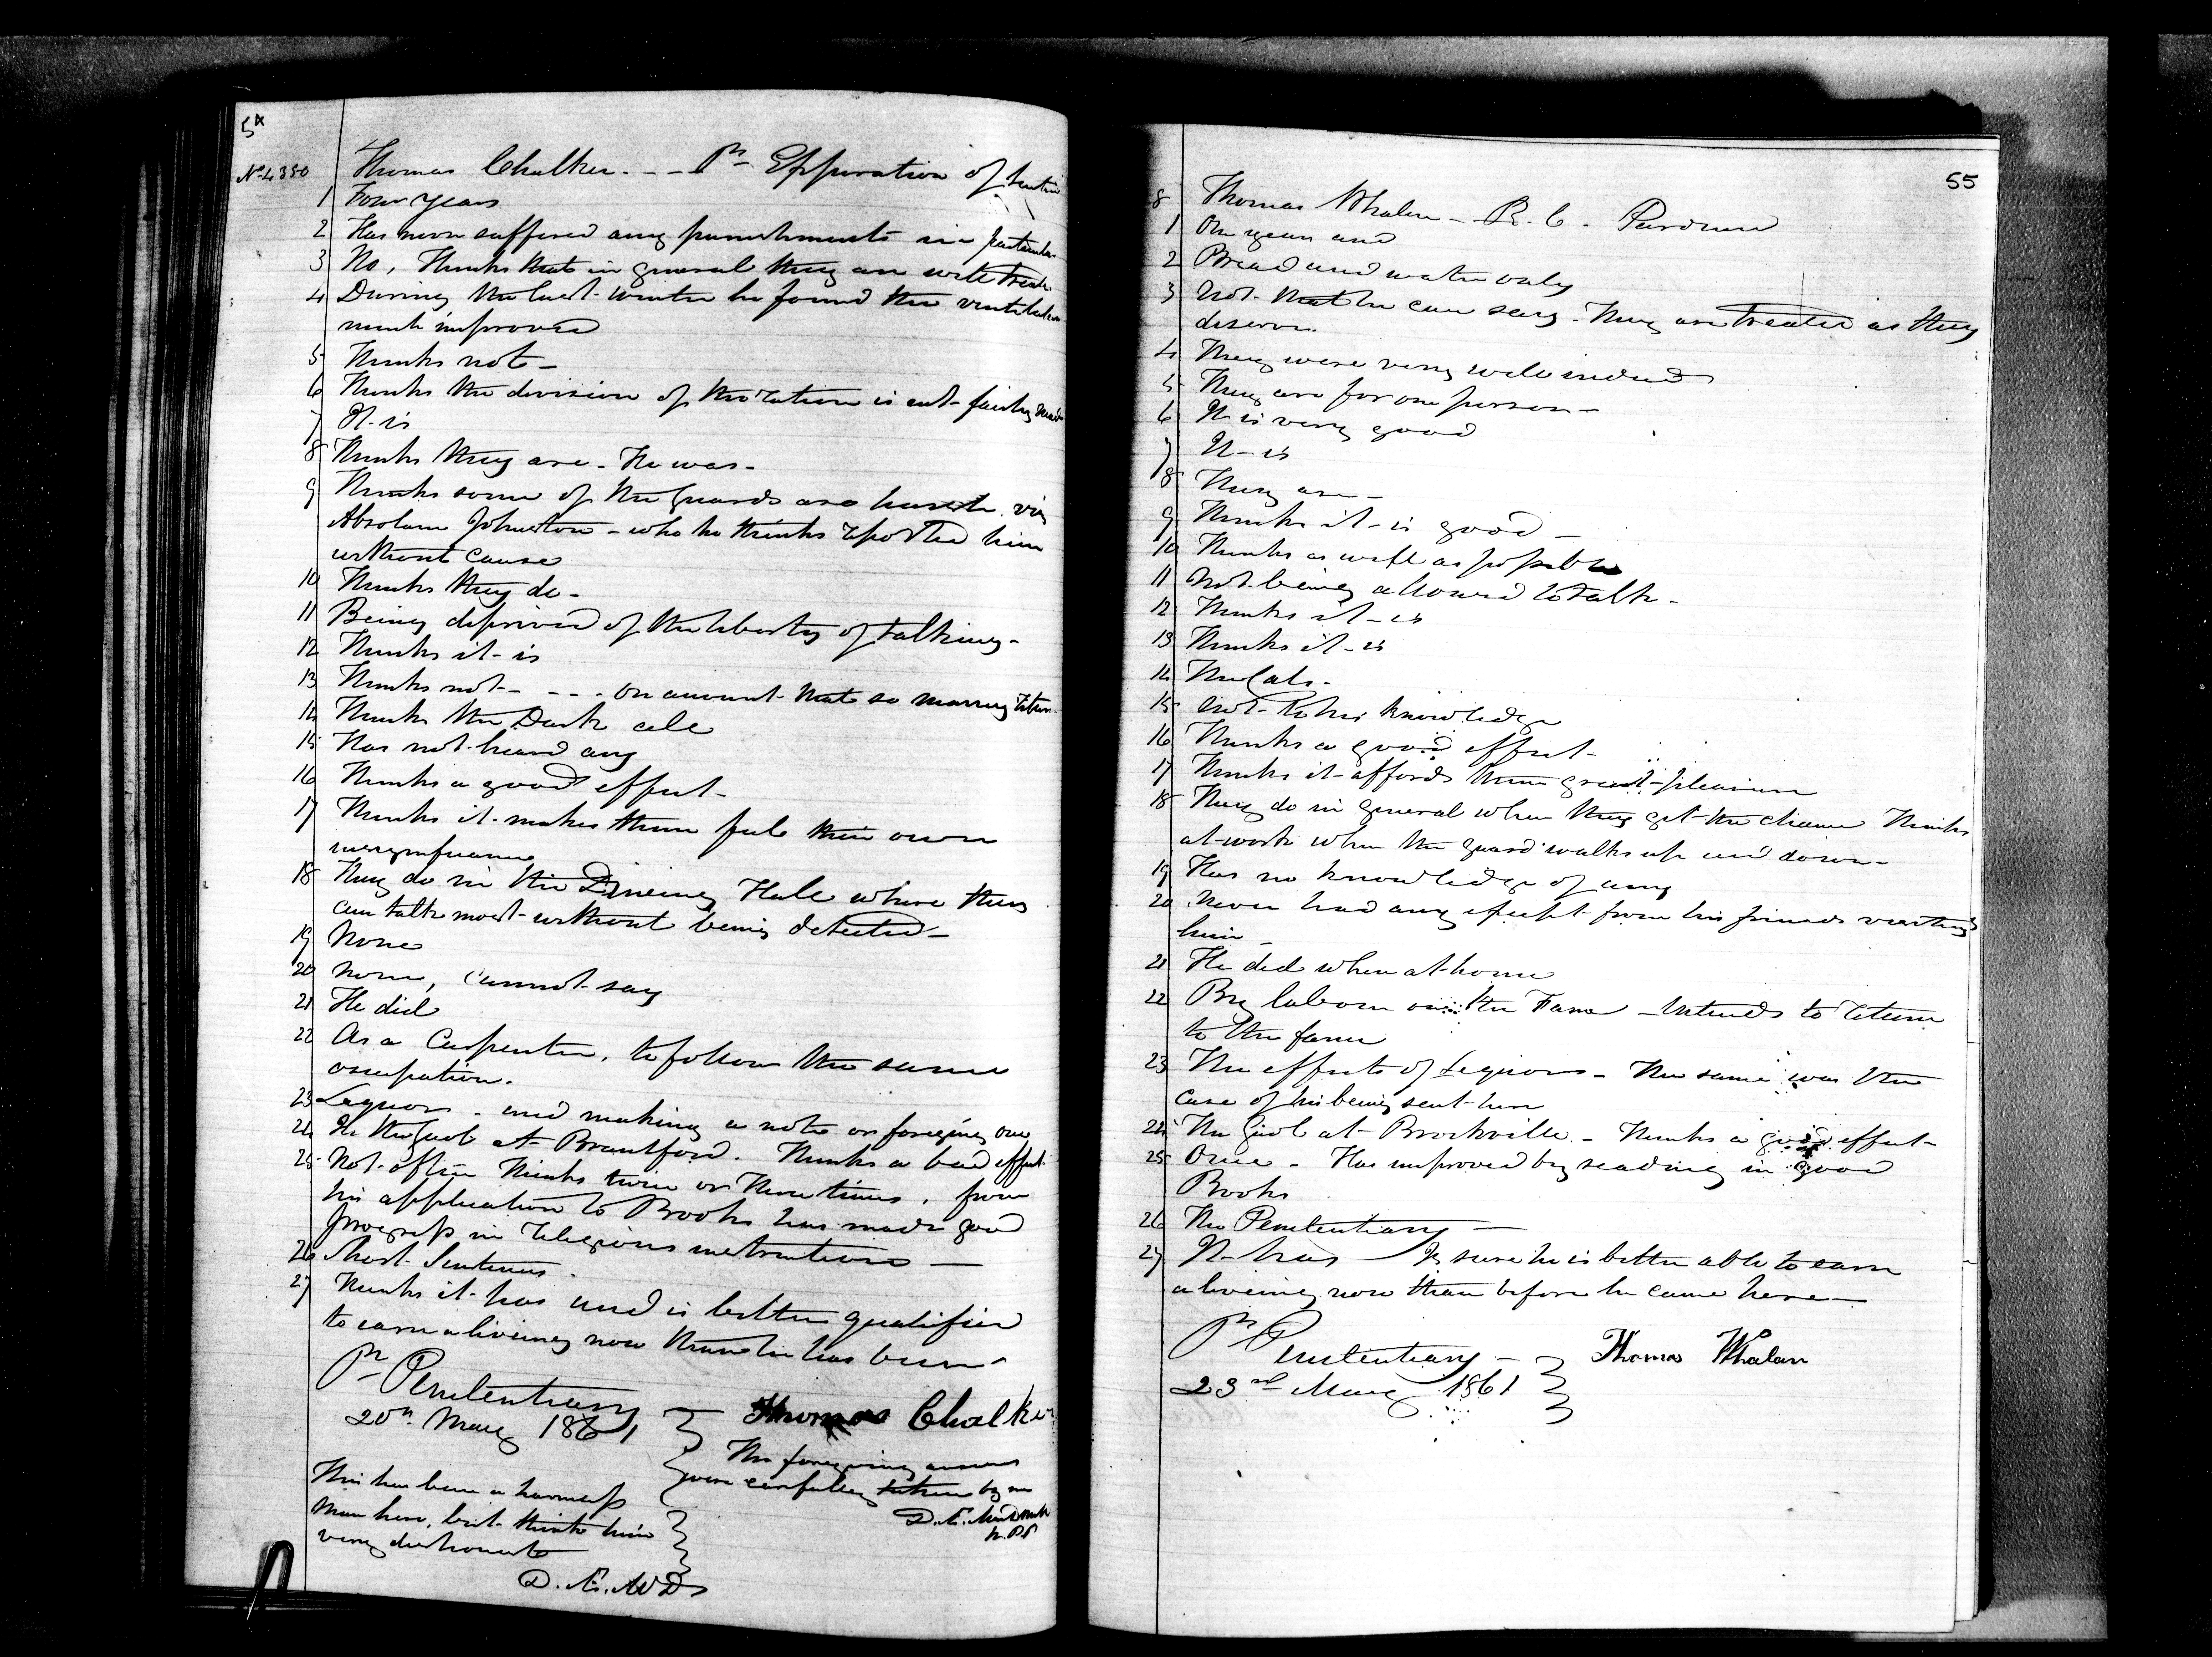 54
No 4350 Thomas Chalker. - - Pr Expiration of Sentence
1 Four years
2 Has never suffered any punishments in particular
3 No, Thinks that in general they are well treated
4 During the last winter he found the ventilation
much improved
5 Thinks not -
6 Thinks the division of the ration is not fairly made
7 It is
8 Thinks they are - He was -
9 Thinks some of the Guards are harsh viz
Absolum Johnston - who he thinks reported him
without cause
10 Thinks they do -
11 Being deprived of the liberty of talking -
12 Thinks it is
13 Thinks not - - - - on account that so many return
14 Thinks the Dark cell
15 Has not heard any
16 Thinks a good effect -
17 Thinks it makes them feel their own
insignificance
18 They do in the Dineing Hall where they
can talk most without being detected -
19 None
20 None, cannot say
21 He did
22 As a Carpenter, to follow the same
occupation.
23 Lequors - and making a note or foregeing one
24 In the Gaol at Brantford. Thinks a bad effect
25 Not often Thinks twice or Three times, from
his application to Books has made good
progress in Religious instructions -
26 Short Sentences -
27 Thinks it has and is better qualified
to earn a liveing now than he has been -
Pr Penitentiary
20th May 1861
Thomas Chalker
The foregoing answers
were carefully taken by me
This has been a harmless
Man here, but think him
very dishonest
55
8 Thomas Whalen - R. C. - Pardoned
1 One year and
2 Bread and water only
3 Not that he can say. They are treated as they
deserve.
4 They were very well indeed
5 They are for one person -
6 It is very good
7 It is
8 They are -
9 Thinks it is good -
10 Thinks as well as possible
11 Not being allowed to talk -
12 Thinks it is
13 Thinks it is
14 The Cats -
15 Not to his knowledge
16 Thinks a good effect -
17 Thinks it affords them great pleasure
18 They do in general when they get the chance Thinks
at work when the guard walks up and down -
19 Has no knowledge of any
20 Never had any except from his friends visiting
him -
21 He did when at home
22 By labour on the Farm - Intends to return
to the farm
23 The effects of Lequors - The same was the
case of his being sent here
24 The Gaol at Brockville. - Thinks a good effect -
25 Once - Has improved by reading in good
Books
26 The Penitentiary -
27 It has - Is sure he is better able to earn
a liveing now than before he came here -
Pr Penitentiary -
23rd May 1861
Thomas Whalan